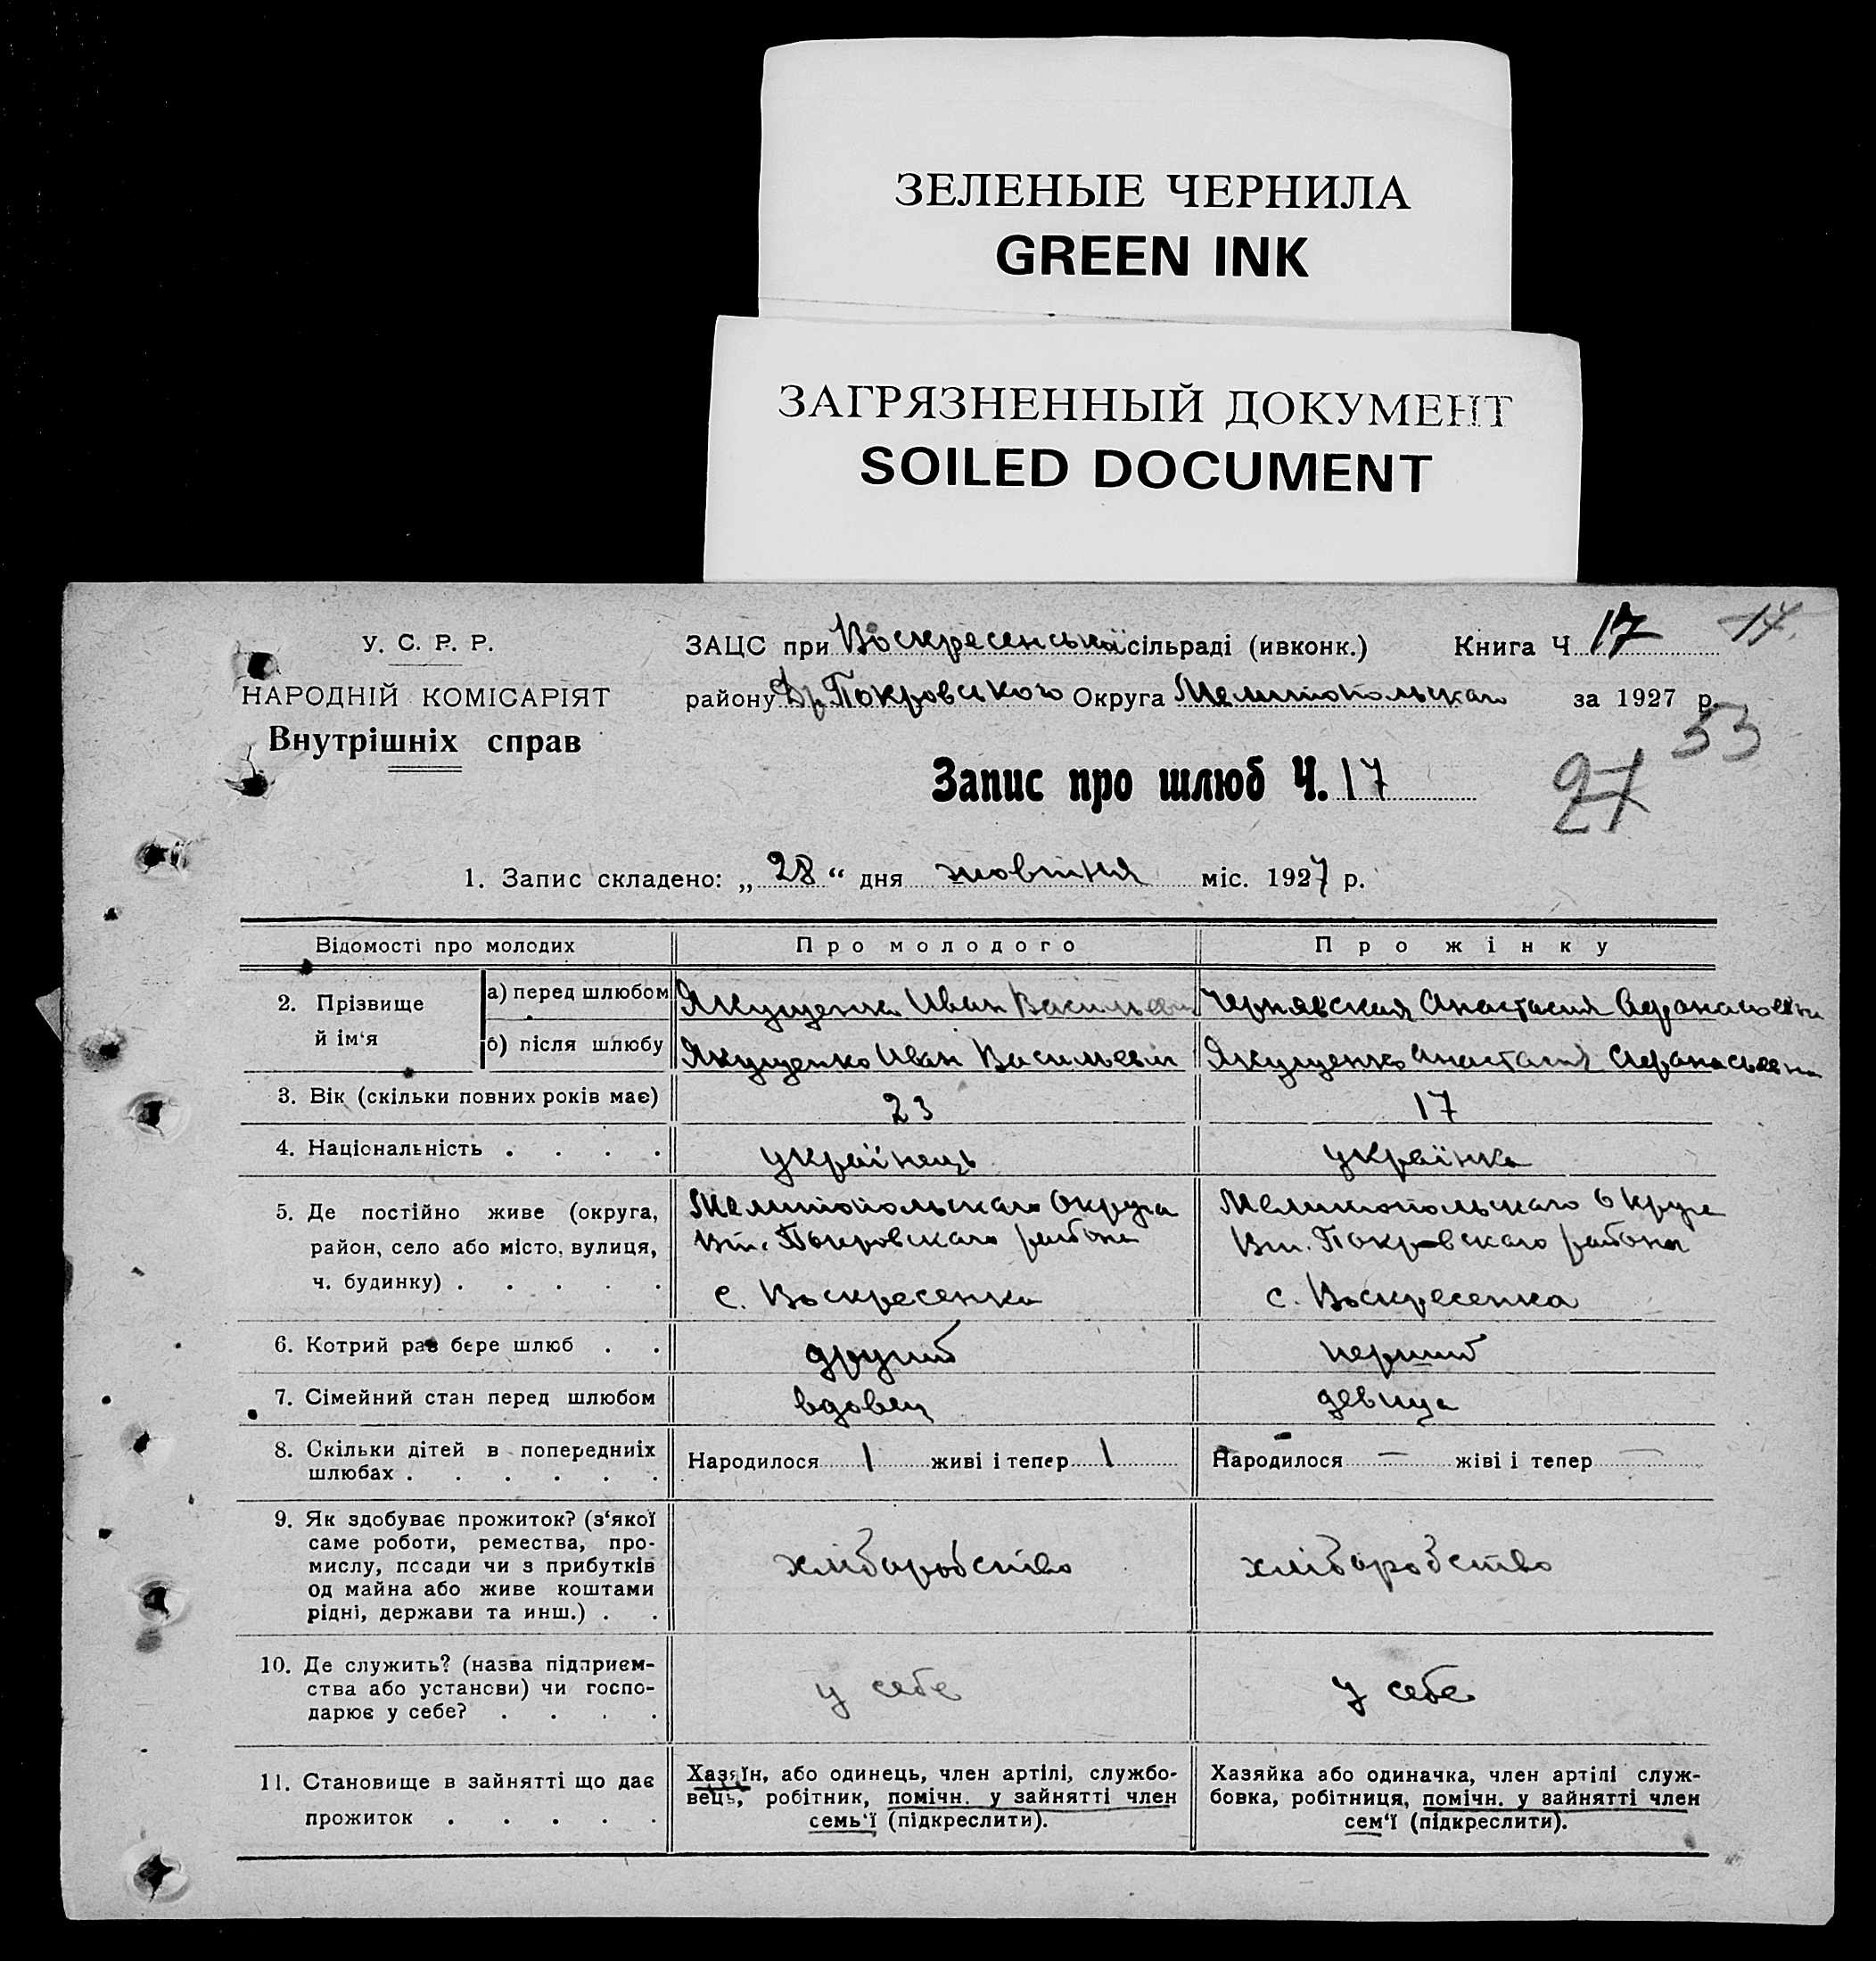 ЗЕЛЕНЫЕ ЧЕРНИЛА
GREEN INK
ЗАГРЯЗНЕННЫЙ ДОКУМЕНТ
SOILED DOCUMENT
У. С. Р. Р.
НАРОДНІЙ КОМІСАРІЯТ
Внутрішніх справ
ЗАЦС при Воскресенській сільраді (ивконк.) Книга Ч 17 14
району Покровського Округа Мелитопольскаго за 1927 р.
53
27
Запис про шлюб Ч. 17
1. Запис складено: „ 28 “ дня жовтня міс. 1927 р.
Відомості про молодих Про молодого Про жінку
2. Прізвище й ім‘я
а) перед шлюбом Якущенко Иван Васильевич Чернявская Анастасия Афанасьевна
б) після шлюбу Якущенко Иван Васильевич Якущенко Анастасия Афанасьевна
3. Вік (скільки повних років має) 23 17
4. Національність . . . . українець українка
5. Де постійно живе (округа,
район, село або місто, вулиця,
ч. будинку) . . . . .
Мелитопольскаго Округа
Вт. Покровскаго района
с. Воскресенка
Мелитопольскаго Округа
Вт. Покровскаго района
с. Воскресенка
6. Котрий раз бере шлюб . . другий перший
7. Сімейний стан перед шлюбом вдовец девица
8. Скільки дітей в попередниіх
шлюбах . . . . . .
Народилося 1 живі і тепер 1
Народилося — жіві і тепер —
9. Як здобуває прожиток? (з‘якої
саме роботи, ремества, про-
мислу, посади чи з прибутків
од майна або живе коштами
рідні, держави та инш.) . .
хліборобство
хліборобство
10. Де служить? (назва підприєм-
ства або установи) чи госпо-
дарює у себе? . . . .
у себе
у себе
11. Становище в зайнятті що дає
прожиток . . . . .
Хазяїн, або одинець, член артілі, службо-
вець, робітник, помічн. у зайнятті член
семь‘ї (підкреслити).
Хазяйка або одиначка, член артілі служ-
бовка, робітниця, помічн. у зайнятті член
сем‘ї (підкреслити).